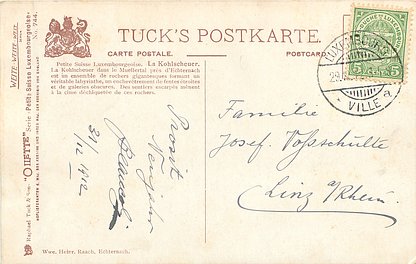 TUCK'S POSTKARTE.
CARTE POSTALE.
POSTCARD
Petite Suisse Luxembourgeoise. La Kohlscheuer.
La Kohlscheuer dans le Muellertal près d'Echternach
est un ensemble de rochers gigantesques formant un
véritable labyrinthe, un enchevêtrement de fentes étroites
et de galeries obscures. Des sentiers escarpés mènent
à la cîme déchiquetée de ces rochers.
Prosit
Neujahr
31/12 1912
Familie
Josef Voßschulte
Linz a/Rhein.
Wwe. Heinr. Raach, Echternach.
Raphael Tuck & Sons' "OILETTE" Serie Petite Suisse Luxembourgeoise No. 744.
LUXEMBOURG
VILLE
5 5